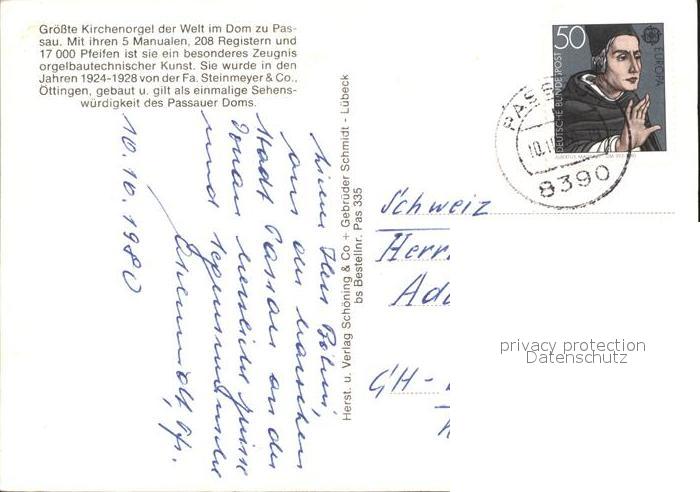 Größte Kirchenorgel der Welt im Dom zu Pas-
sau. Mit ihren 5 Manualen, 208 Registern und
17 000 Pfeifen ist sie ein besonderes Zeugnis
orgelbautechnischer Kunst. Sie wurde in den
Jahren 1924-1928 von der Fa. Steinmeyer & Co.,
Öttingen, gebaut u. gilt als einmalige Sehens-
würdigkeit des Passauer Doms.
Herst. u. Verlag Schöning & Co + Gebrüder Schmidt - Lübeck
bs Bestellnr. Pas 335
Lieber Herr
aus der
Stadt Passau an der
Donau herzliche Grüsse
und
10.10.1980
50
DEUTSCHE BUNDESPOST
EUROPA
PASS
10.1
8390
Schweiz
Herr
Ad
CH-
privacy protection
Datenschutz